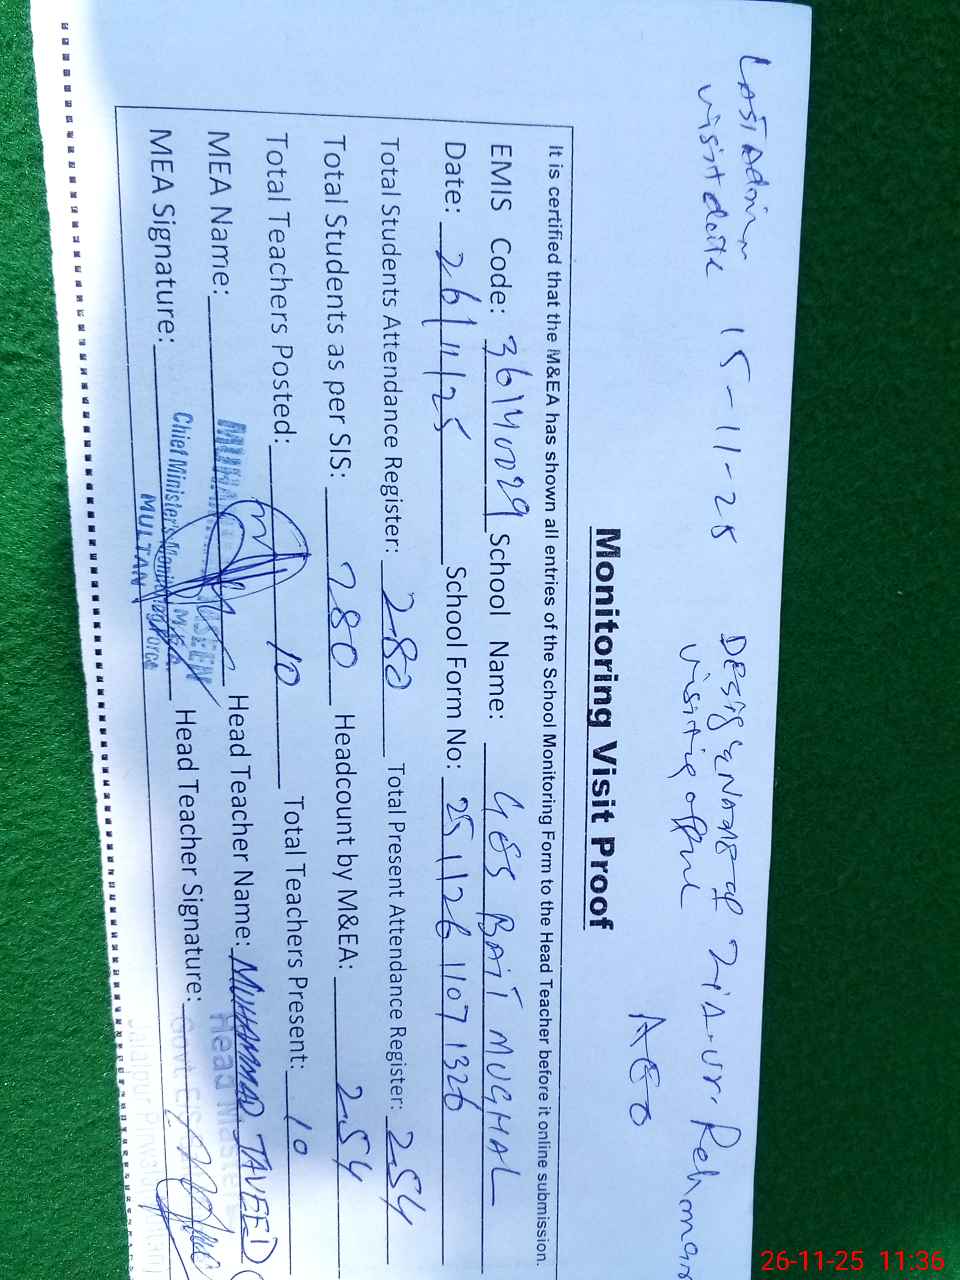 LAST Admin visit date 15-11-25 Desig & Name of visiting officer ZIA-ur-Rehman
AEO
Monitoring Visit Proof
It is certified that the M&EA has shown all entries of the School Monitoring Form to the Head Teacher before it online submission.
EMIS Code: School Name: GES BAIT MUGHAL
Date: 26/11/25 School Form No: 25 1126 1107 1326
Total Students Attendance Register: 280 Total Present Attendance Register: 254
Total Students as per SIS: 280 Headcount by M&EA: 254
Total Teachers Posted: 10 Total Teachers Present: 10
MEA Name: Head Teacher Name: MUHAMMAD
MEA Signature: Head Teacher Signature:
Chief Minister's Monitoring Force
MULTAN
Head Master
26-11-25 11:36